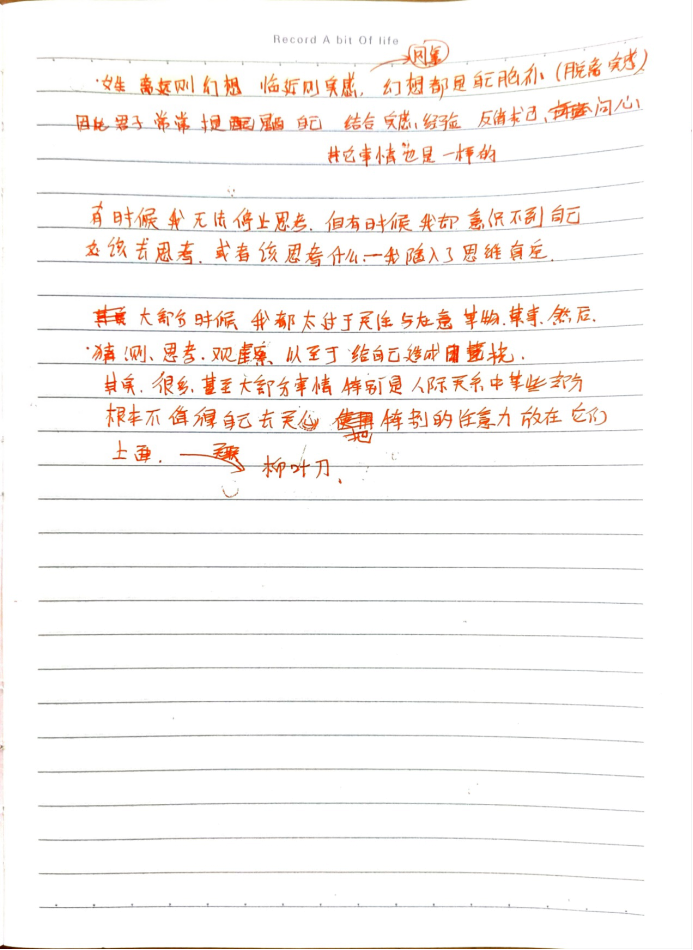 Record A bit Of life
·姓 离远则幻想 临近则实感, 幻想都是自己脑补 (脱离实感)
因此君子常常提醒自己 结合实感,经验 反省求己, 问心
其它事情也是一样的
有时候我无法停止思考. 但有时候我却意识不到自己
应该去思考. 或者该思考什么.一我陷入了思维盲区.
大部分时候 我都太过于关注与在意 某物.某事.然后.
·猜测、思考.观察、以至于给自己造成困扰.
其实.很多.甚至大部分事情 特别是人际关系中某些部分
根本不值得自己去关心 把特别的注意力放在它们
上面.
柳叶刀.